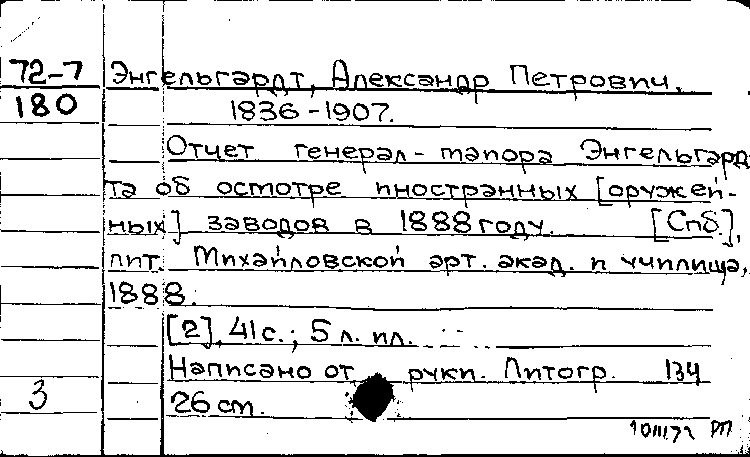 72-7 Энгельгардт, Александр Петрович,
180 1836-1907.
Отчет генерал-майора Энгельгард
та об осмотре иностранных [оружей-
ных] заводов в 1888 году. [Спб],
лит. Михайловской арт. акад. и училища,
1888.
[2], 41 с.; 5 л. ил.
Написано от руки. Литогр. 134
3 26 см.